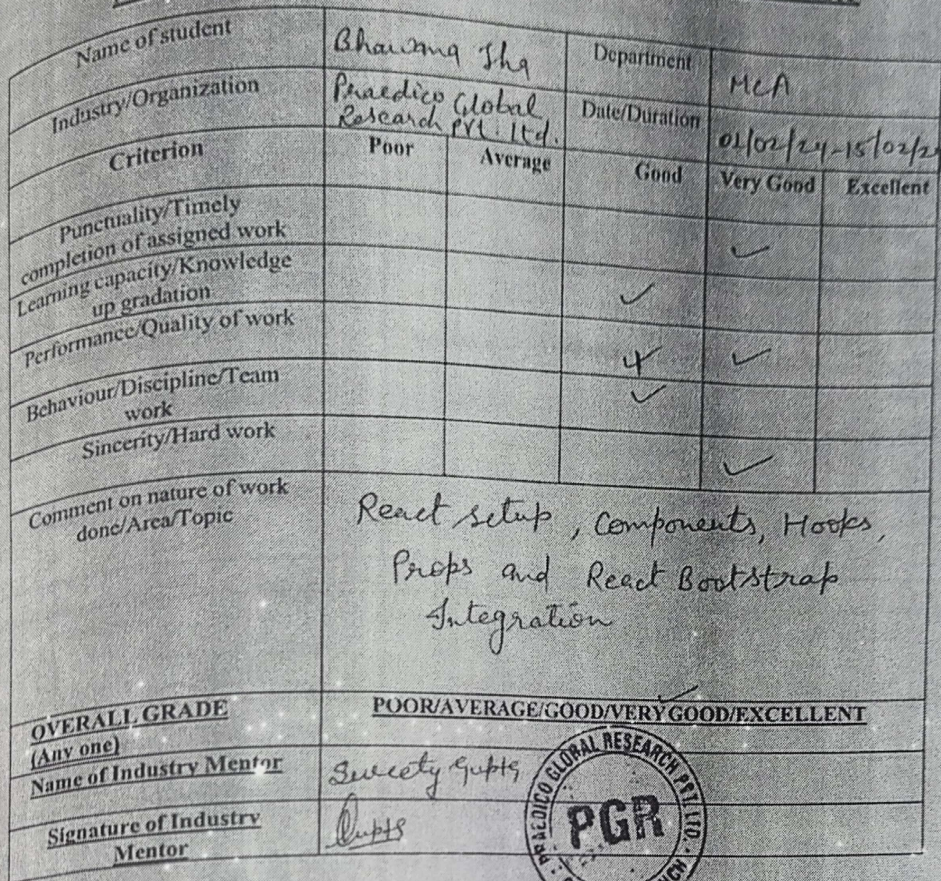 Name of student Bhawana Jha Department MCA
Industry/Organization Praedico Global Research Pvt. Ltd. Date/Duration 01/02/24-15/02/2
Criterion Poor Average Good Very Good Excellent
Punctuality/Timely
completion of assigned work ✓
Learning capacity/Knowledge
up gradation ✓
Performance/Quality of work ✓
Behaviour/Discipline/Team
work ✓
Sincerity/Hard work ✓
Comment on nature of work
done/Area/Topic
React setup, Components, Hooks,
Props and React Bootstrap
Integration
OVERALL GRADE
(Any one)
POOR/AVERAGE/GOOD/VERY GOOD/EXCELLENT
Name of Industry Mentor Sweety Gupta
Signature of Industry
Mentor
Gupta
PRAEDICO GLOBAL RESEARCH PVT. LTD.
PGR